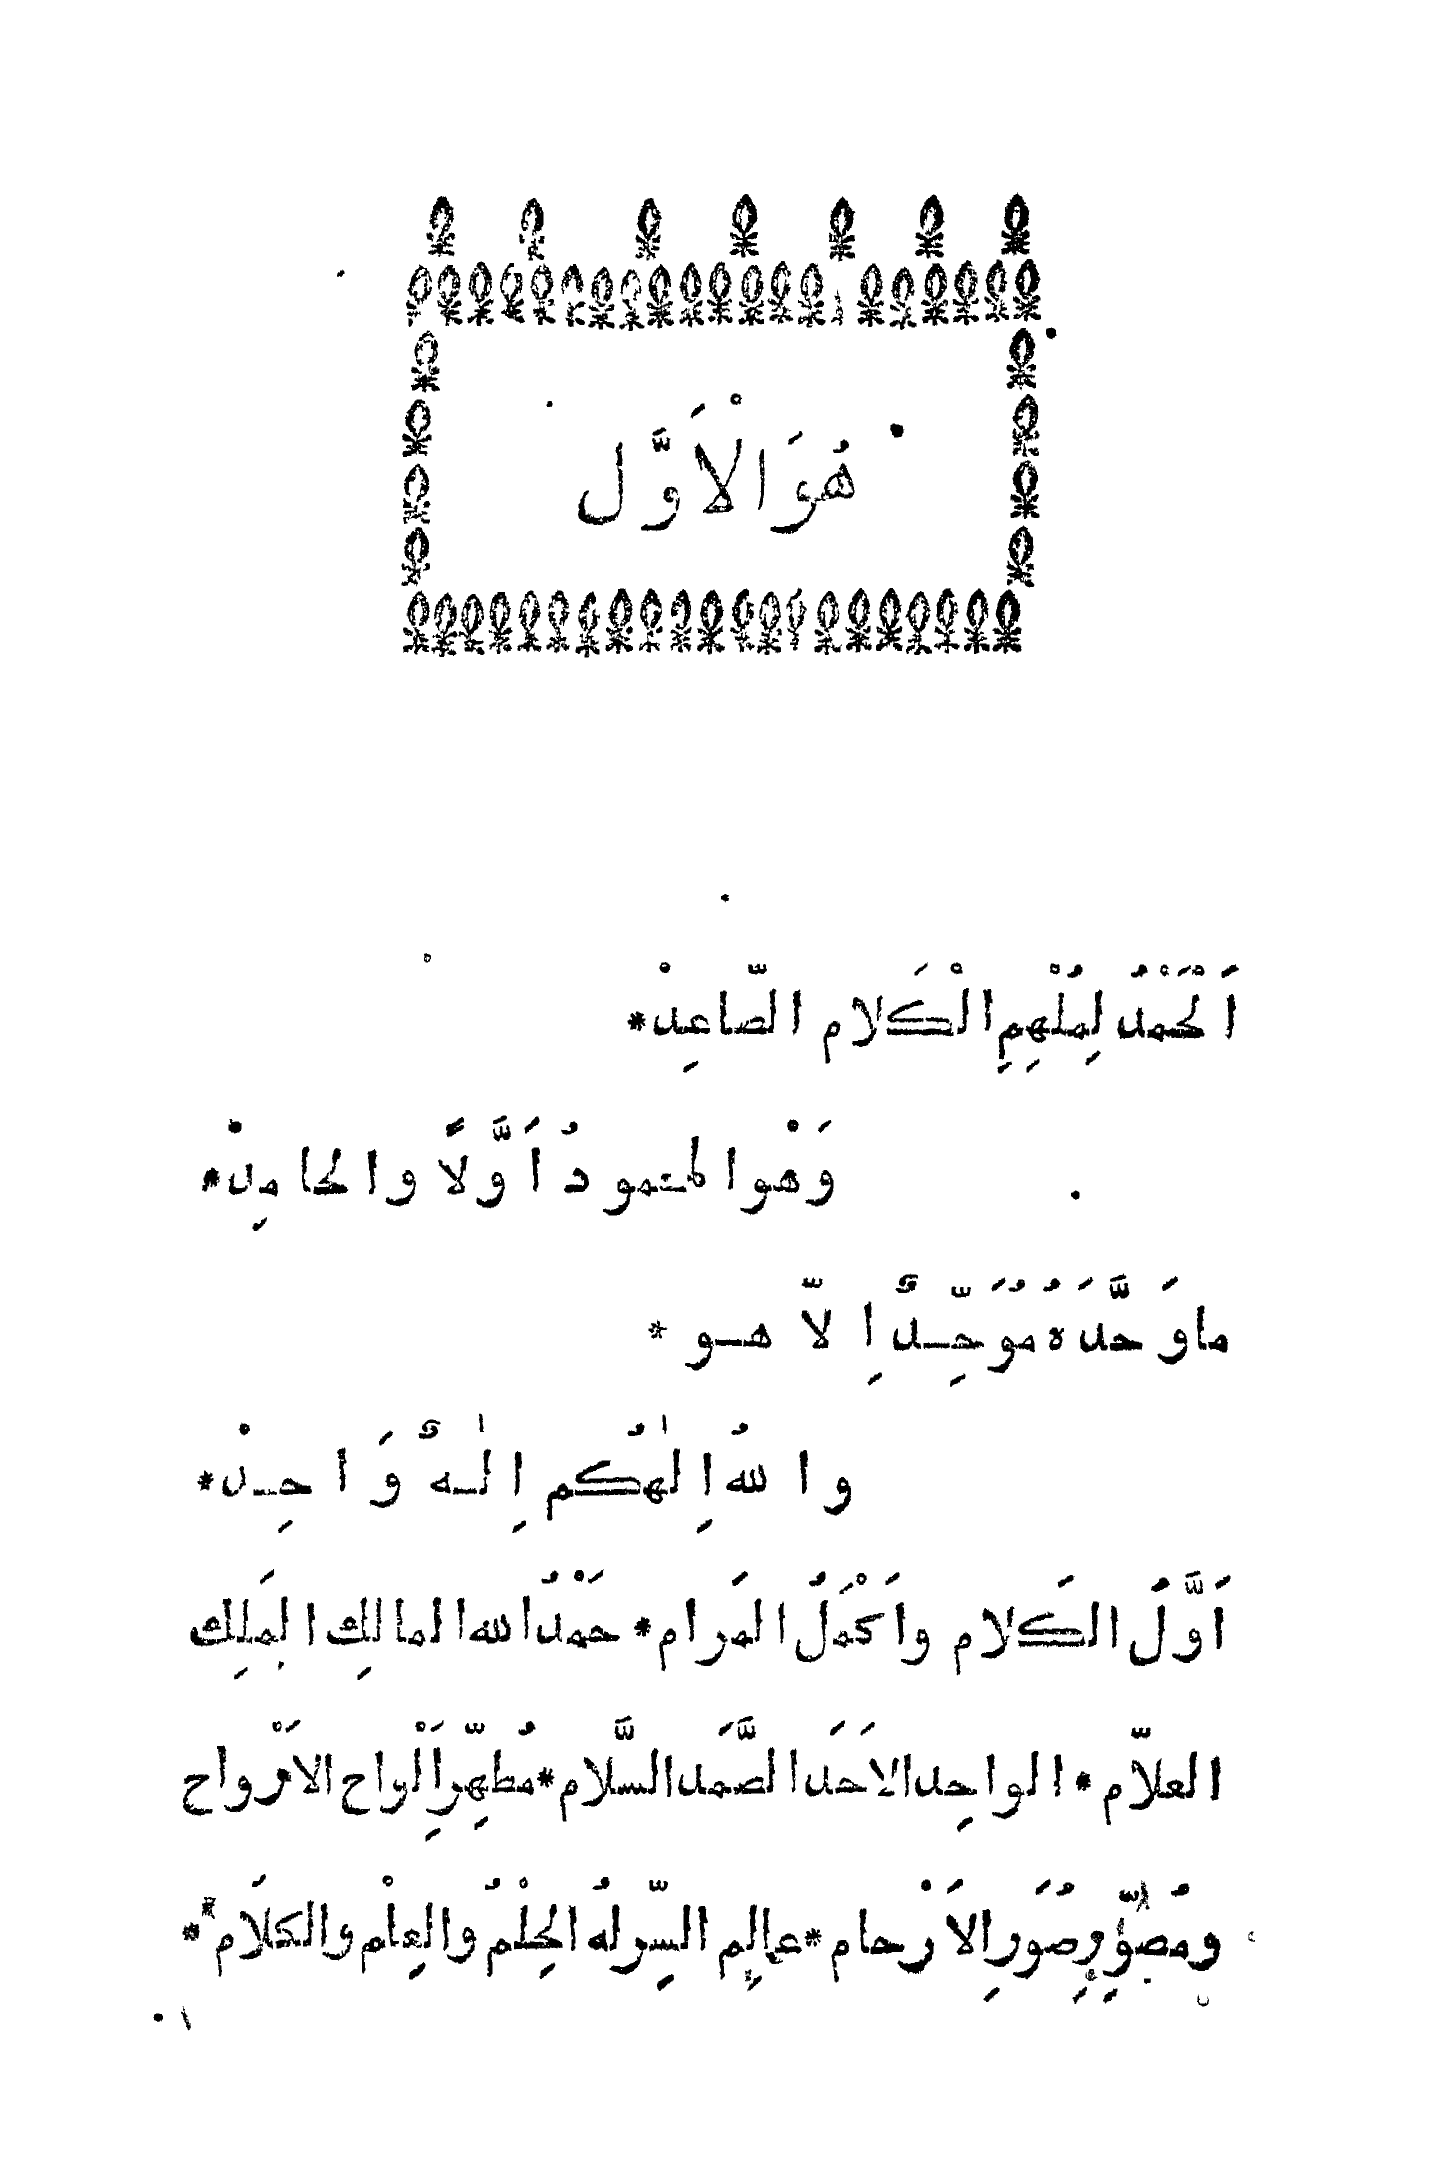 هُوَ الْاَوَّل
اَلْحَمْدُ لِمُلْهِمِ الْكَلَام الصّاعِدْ *
وَهْوا لمحمودُ اَوَّلًا والحامِدْ *
ماوَحَّدَهُ مُوَحِّـدٌ اِلّا هـو *
واللهُ اِلٰهُكُم اِلٰـهٌ وَاحِـدْ *
اَوَّلُ الكَلام واَكْمَلُ المَرام * حَمْدُ الله المالِكِ المَلِك
العلّام * الواحِد الاَحَد الصَّمَد السَّلام * مُطَهِّرِ اَلْواح الاَرْواح
ومُصَوِّرِ صُوَرِ الاَرْحام * عالِمِ السِّر لهُ الحِلْمُ والعِلْم والكلَام *